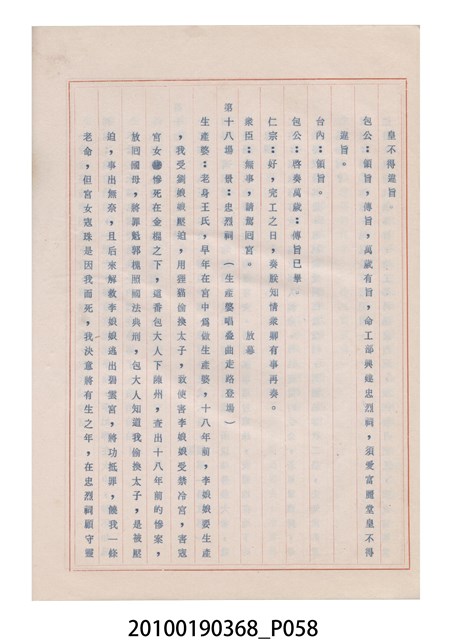 皇不得違旨。
包公：領旨，傳旨，萬歲有旨，命工部興建忠烈祠，須愛富麗堂皇不得
違旨。
台內：領旨。
包公：啓奏萬歲：傳旨已畢。
仁宗：好，完工之日，奏朕知情衆卿有事再奏。
衆臣：無事，請駕回宮。　放幕
第十八場　景：忠烈祠　（生產婆唱叠曲走路登場）
生產婆：老身王氏，早年在宮中爲做生產婆，十八年前，李娘娘要生產
，我受劉娘娘壓迫，用狸猫偷換太子，致使害李娘娘受禁冷宮，害寇
宮女慘死在金棍之下，這番包大人下陳州，查出十八年前的慘案，
放回國母，將罪魁郭槐照國法典刑，包大人知道我偷換太子，是被壓
迫，事出無奈，且后來解救李娘娘逃出碧雲宮，將功抵罪，饒我一條
老命，但宮女寇珠是因我而死，我決意將有生之年，在忠烈祠顧守靈
20100190368_P058